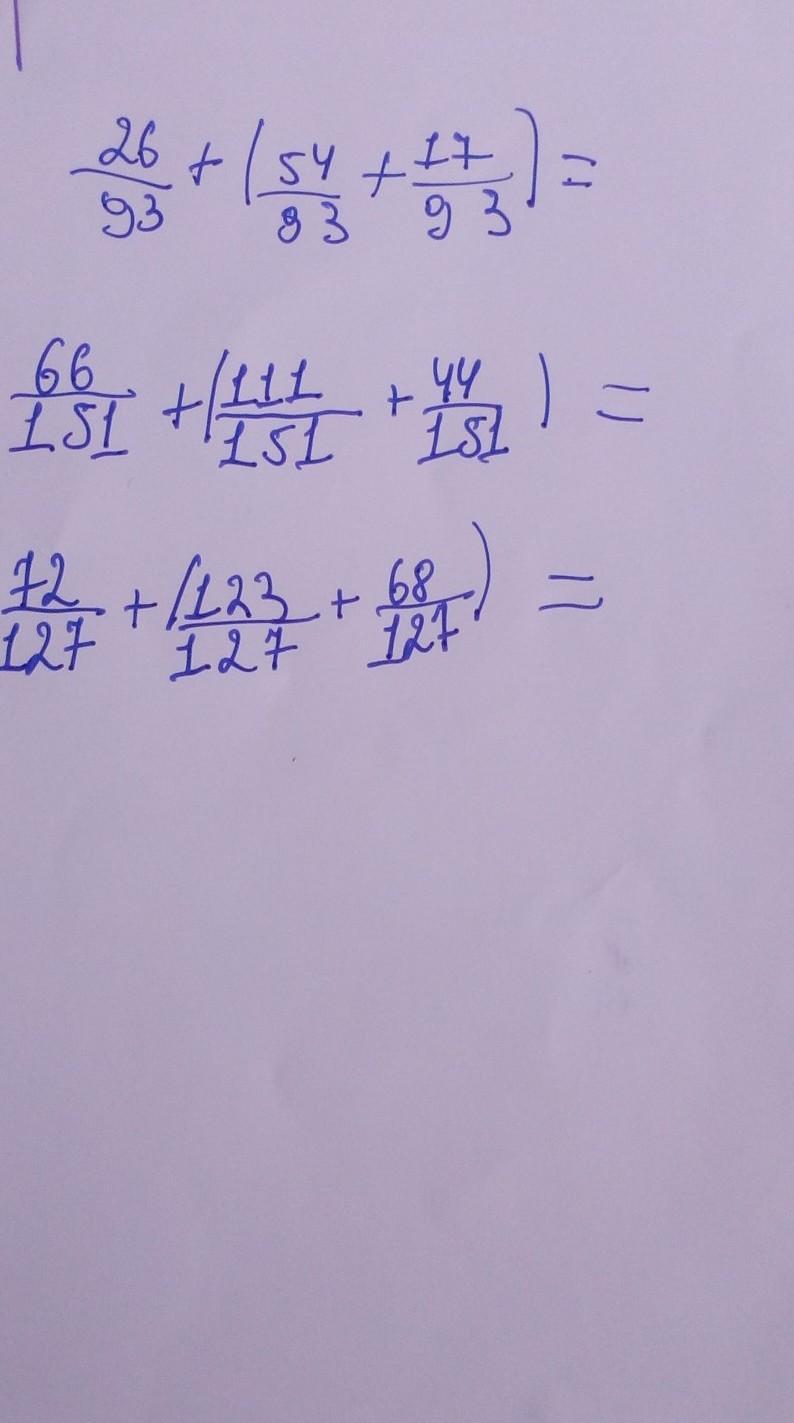 26/93 + (54/93 + 17/93) =
66/151 + (111/151 + 44/151) =
72/127 + (123/127 + 68/127) =